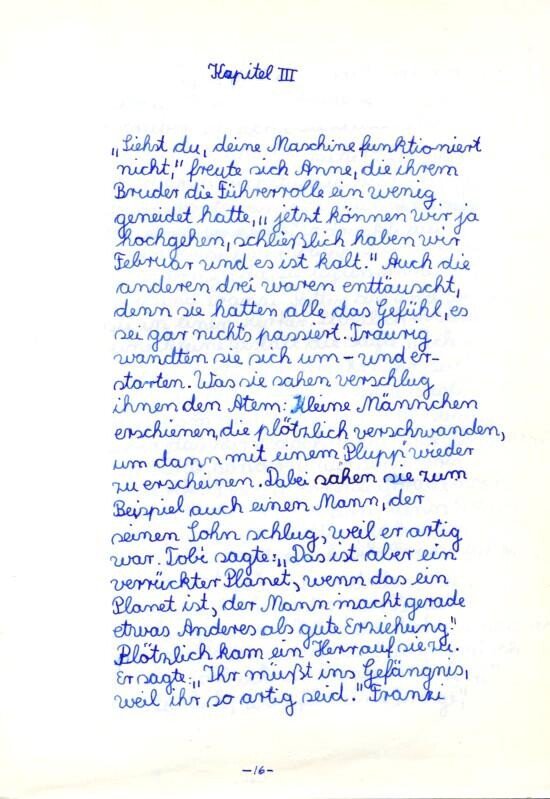 Kapitel III
„Siehst du, deine Maschine funktioniert
nicht," freute sich Anne, die ihrem
Bruder die Führerrolle ein wenig
geneidet hatte, „jetzt können wir ja
hochgehen, schließlich haben wir
Februar und es ist kalt." Auch die
anderen drei waren enttäuscht,
denn sie hatten alle das Gefühl, es
sei gar nichts passiert. Traurig
wandten sie sich um – und er-
starten. Was sie sahen verschlug
ihnen den Atem: Kleine Männchen
erschienen, die plötzlich verschwanden,
um dann mit einem „Plupp" wieder
zu erscheinen. Dabei sahen sie zum
Beispiel auch einen Mann, der
seinen Sohn schlug, weil er artig
war. Tobi sagte: „Das ist aber ein
verrückter Planet, wenn das ein
Planet ist, der Mann macht gerade
etwas Anderes als gute Erziehung."
Plötzlich kam ein Herr auf sie zu.
Er sagte: „Ihr müßt ins Gefängnis,
weil ihr so artig seid." Franzi
-16-